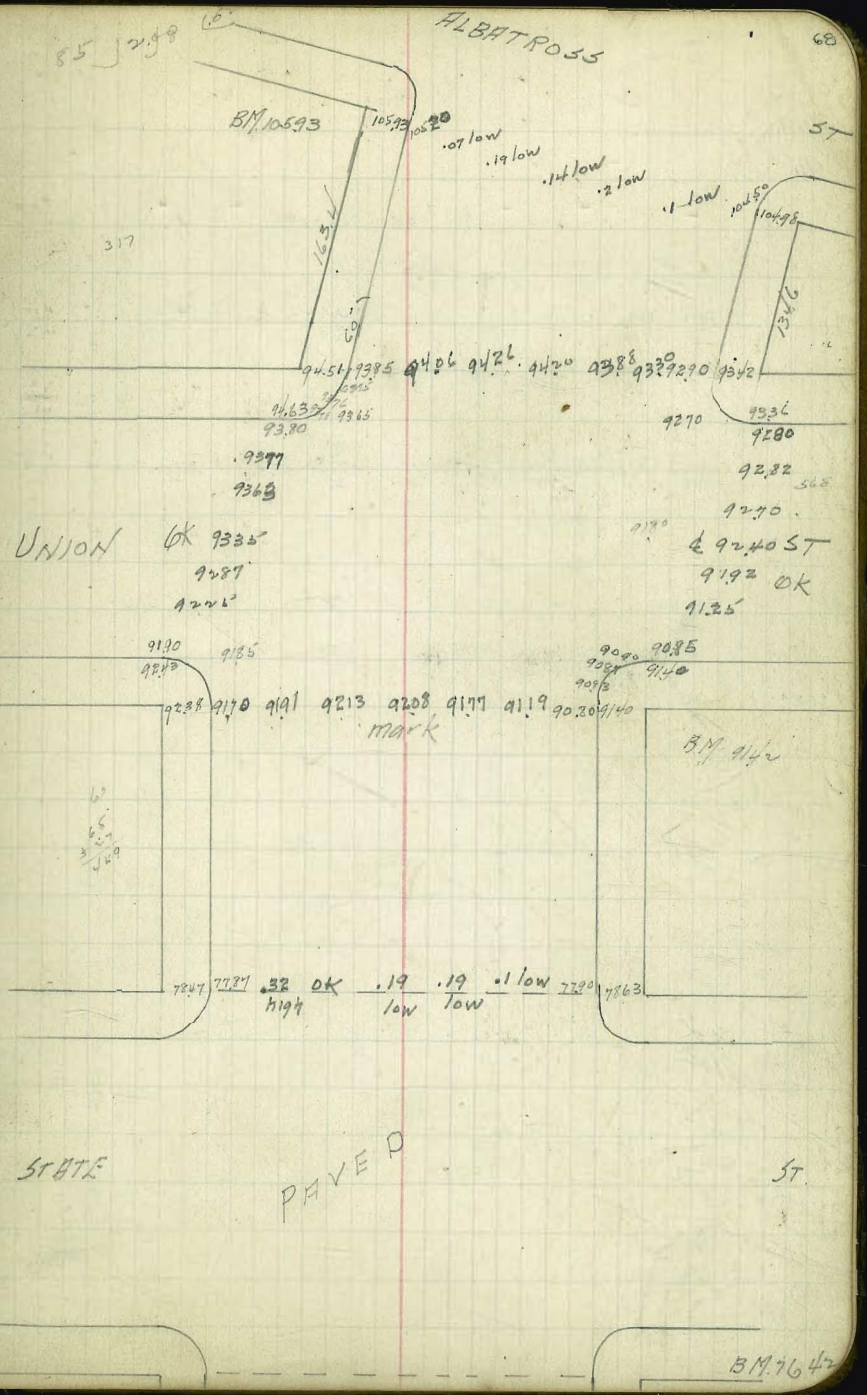 ALBATROSS
68
85
BM. 10593
10593 10520
.07 low
.19 low
.14 low
.2 low
.1 low
10450
10498
ST
163.2
1346
317
9451 9385 9406 9426 9420 9388 9330 9290 9342
9463
9365
9380
9270
9336
9280
9377
9282
9363
568
9270
9180
UNION OK 9335
¢ 9240 ST
9287
9192 OK
9225
9125
9190
9185
9090 9085
9243
9087 9140
9093
9238 9170 9191 9213 9208 9177 9119 9080 9140
mark
BM 9142
7847 7787 .32 high OK .19 low .19 low .1 low 7790 7863
STATE
PAVED
ST.
BM. 7642